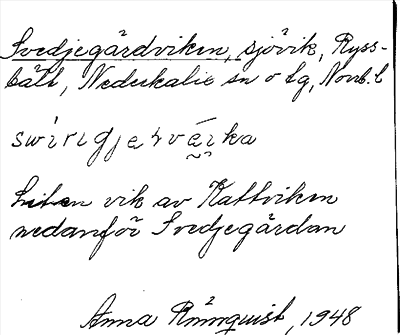 Svedjegårdviken, sjövik, Ryss-
bält, Nederkalix sn o tg, Norrb. l
Liten vik av Kattviken
nedanför Svedjegårdan
Anna Rönnquist, 1948